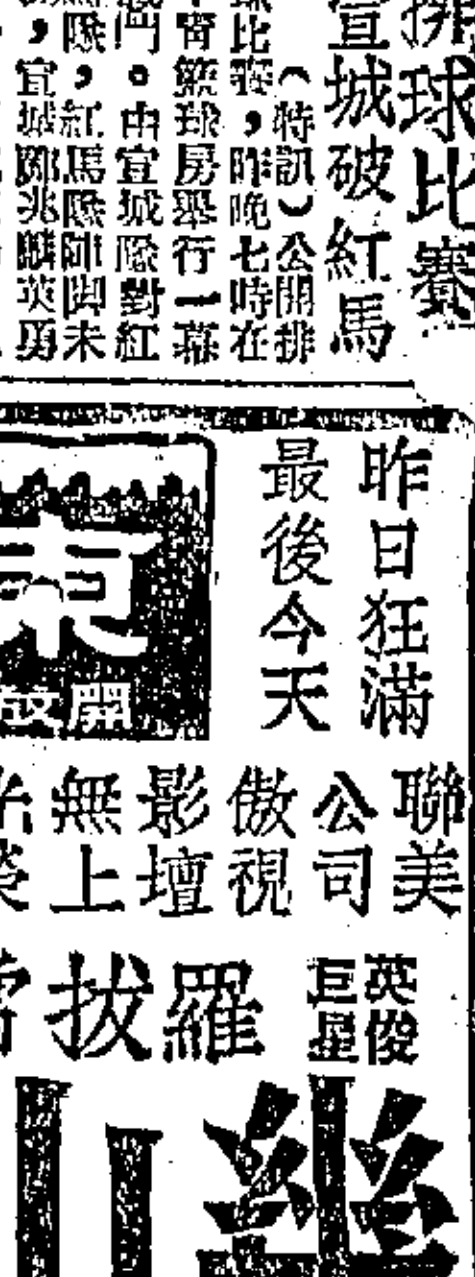 球比賽
宣城破紅馬
（特訊）公開排
球比賽，昨晚七時在
籃球房舉行一幕
戰鬥。由宣城隊對紅
隊，紅馬隊陣脚未
，宣城鄭兆麟英勇
昨日狂滿
最後今天
東
開放
聯美
公司
傲視
影壇
無上
英俊
巨星
羅拔